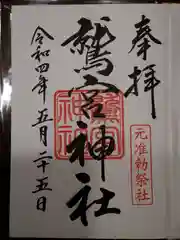 奉拝
元准勅祭社
鷲宮神社
令和四年五月二十五日